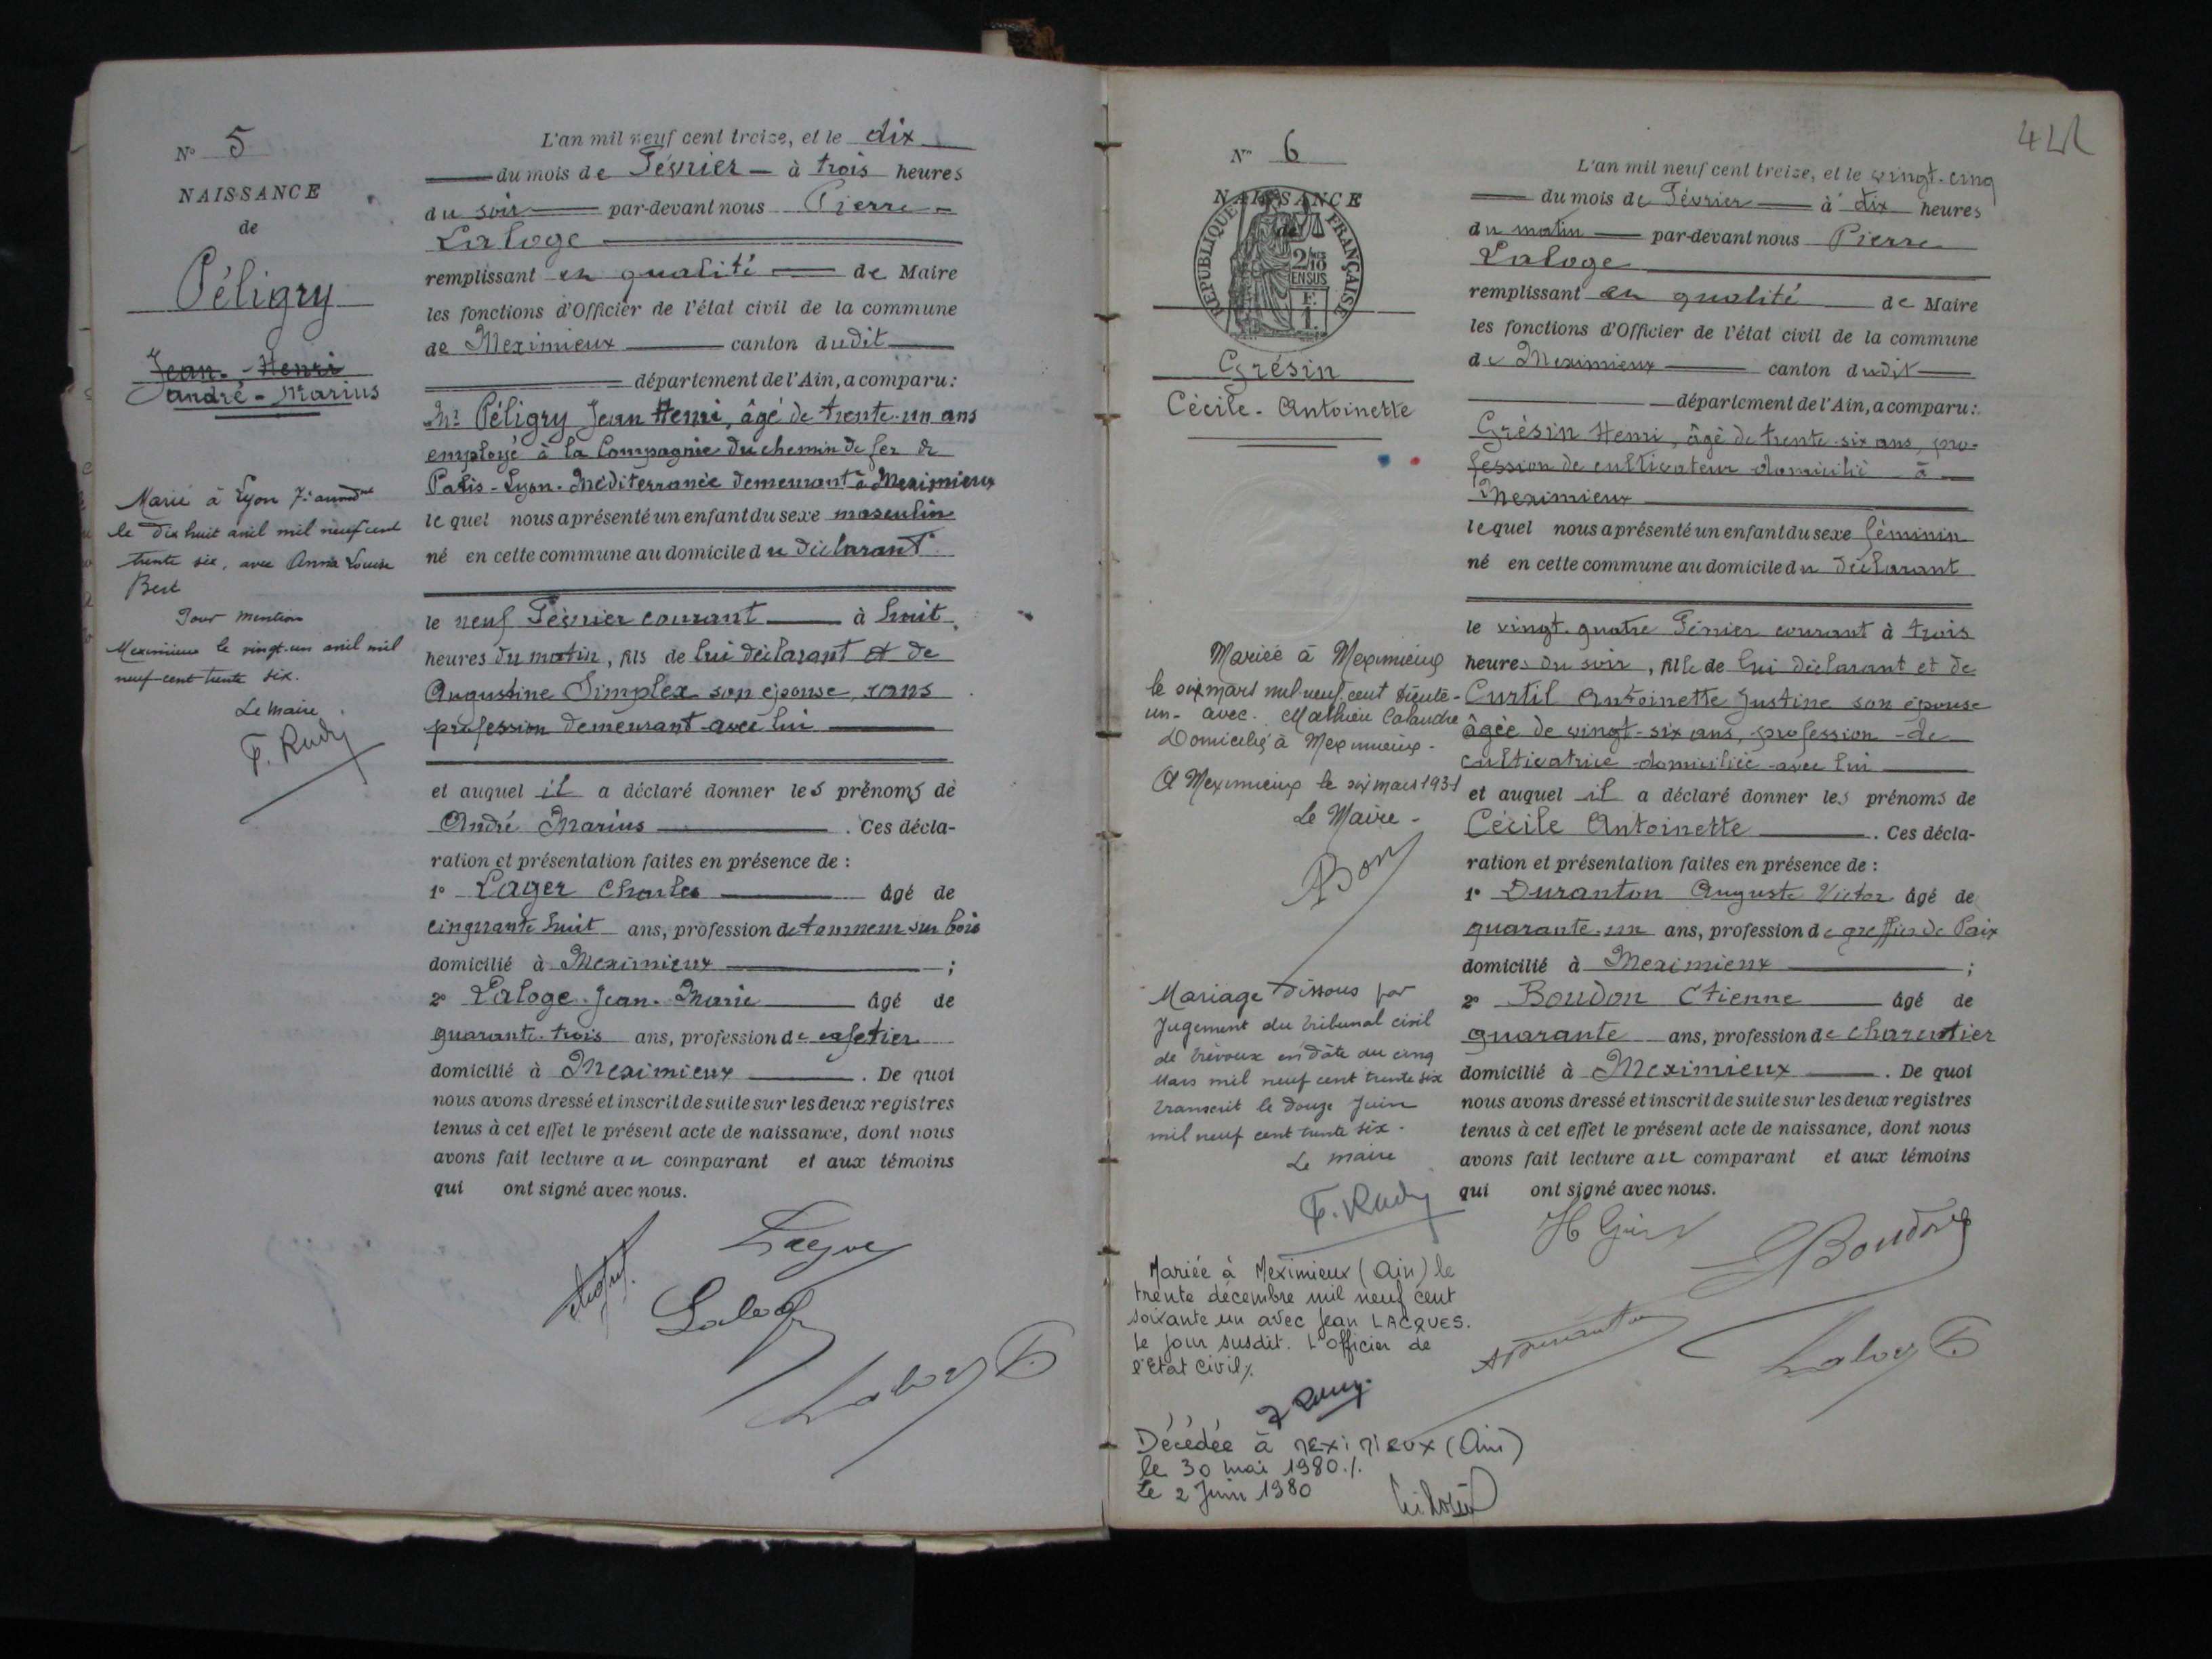 N° 5
NAISSANCE
de
Péligry
Jean-Henri
André-Marius
Marié à Lyon 7e arrondt
le dix huit avril mil neuf cent
trente six, avec Anna Louise
Pour mention
Meximieux le vingt-un avril mil
neuf cent trente six.
Le Maire
F. Rudy
L'an mil neuf cent treize, et le dix
du mois de Février à trois heures
du soir par-devant nous Pierre
Laloge
remplissant en qualité de Maire
les fonctions d'Officier de l'état civil de la commune
de Meximieux canton dudit
département de l'Ain, a comparu :
Mr Péligry Jean Henri, âgé de trente-un ans
employé à la Compagnie du chemin de fer de
Paris-Lyon-Méditerranée demeurant à Meximieux
lequel nous a présenté un enfant du sexe masculin
né en cette commune au domicile du déclarant
le neuf Février courant à huit
heures du matin, fils de lui déclarant et de
Augustine Simplex son épouse, sans
profession demeurant avec lui
et auquel il a déclaré donner les prénoms de
André Marius . Ces décla-
ration et présentation faites en présence de :
1° Lager Charles âgé de
cinquante huit ans, profession de tourneur sur bois
domicilié à Meximieux ;
2° Laloge Jean-Marie âgé de
quarante-trois ans, profession de cafetier
domicilié à Meximieux . De quoi
nous avons dressé et inscrit de suite sur les deux registres
tenus à cet effet le présent acte de naissance, dont nous
avons fait lecture au comparant et aux témoins
qui ont signé avec nous.
Laloge
Laloge P.
N° 6
NAISSANCE
de
REPUBLIQUE FRANÇAISE
2/10
EN SUS
F.
1.
Grésin
Cécile-Antoinette
Mariée à Meximieux
le six mars mil neuf cent trente-
un- avec Mathieu Calandre
Domicilié à Meximieux-
A Meximieux le six mars 1931
Le Maire-
Bon
Mariage dissous par
Jugement du Tribunal civil
de Trévoux en date du cinq
Mars mil neuf cent trente six
transcrit le douze Juin
mil neuf cent trente six.
Le maire
F. Rudy
Mariée à Meximieux (Ain) le
trente décembre mil neuf cent
soixante un avec Jean LACQUES.
Le jour susdit. L'Officier de
l'Etat Civil./.
Décédée à Meximieux (Ain)
le 30 mai 1980./.
Le 2 Juin 1980
L'an mil neuf cent treize, et le vingt-cinq
du mois de Février à dix heures
du matin par-devant nous Pierre
Laloge
remplissant en qualité de Maire
les fonctions d'Officier de l'état civil de la commune
de Meximieux canton dudit
département de l'Ain, a comparu :
Grésin Henri, âgé de trente-six ans, pro-
fession de cultivateur domicilié à
Meximieux
lequel nous a présenté un enfant du sexe féminin
né en cette commune au domicile du déclarant
le vingt-quatre Février courant à trois
heures du soir, fille de lui déclarant et de
Curtil Antoinette Justine son épouse
âgée de vingt-six ans, profession de
cultivatrice domiciliée avec lui
et auquel il a déclaré donner les prénoms de
Cécile Antoinette . Ces décla-
ration et présentation faites en présence de :
1° Duranton Auguste Victor âgé de
quarante-un ans, profession de greffier de Paix
domicilié à Meximieux ;
2° Boudon Etienne âgé de
quarante ans, profession de charentier
domicilié à Meximieux . De quoi
nous avons dressé et inscrit de suite sur les deux registres
tenus à cet effet le présent acte de naissance, dont nous
avons fait lecture au comparant et aux témoins
qui ont signé avec nous.
H Grésin
Boudon
A Duranton
Laloge P.